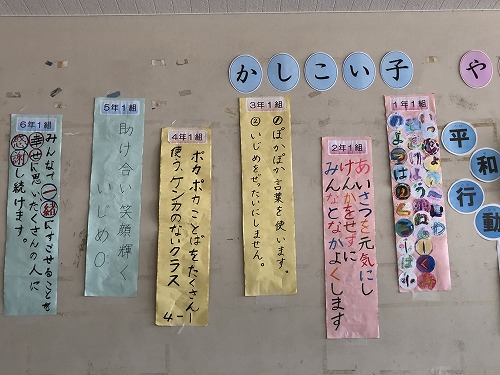 かしこい子
や
平和
行動
1年1組
2年1組
あいさつを元気にし
けんかをせずに
みんなとなかよくします
3年1組
①ぽかぽか言葉を使います。
②いじめをぜったいにしません。
4年1組
ポカポカことばをたくさん
使う、ケンカのないクラス
4-1
5年1組
助け合い笑顔輝く
いじめ0
6年1組
みんなで一緒にすごせることを
幸せに思い、たくさんの人に
感謝し続けます。